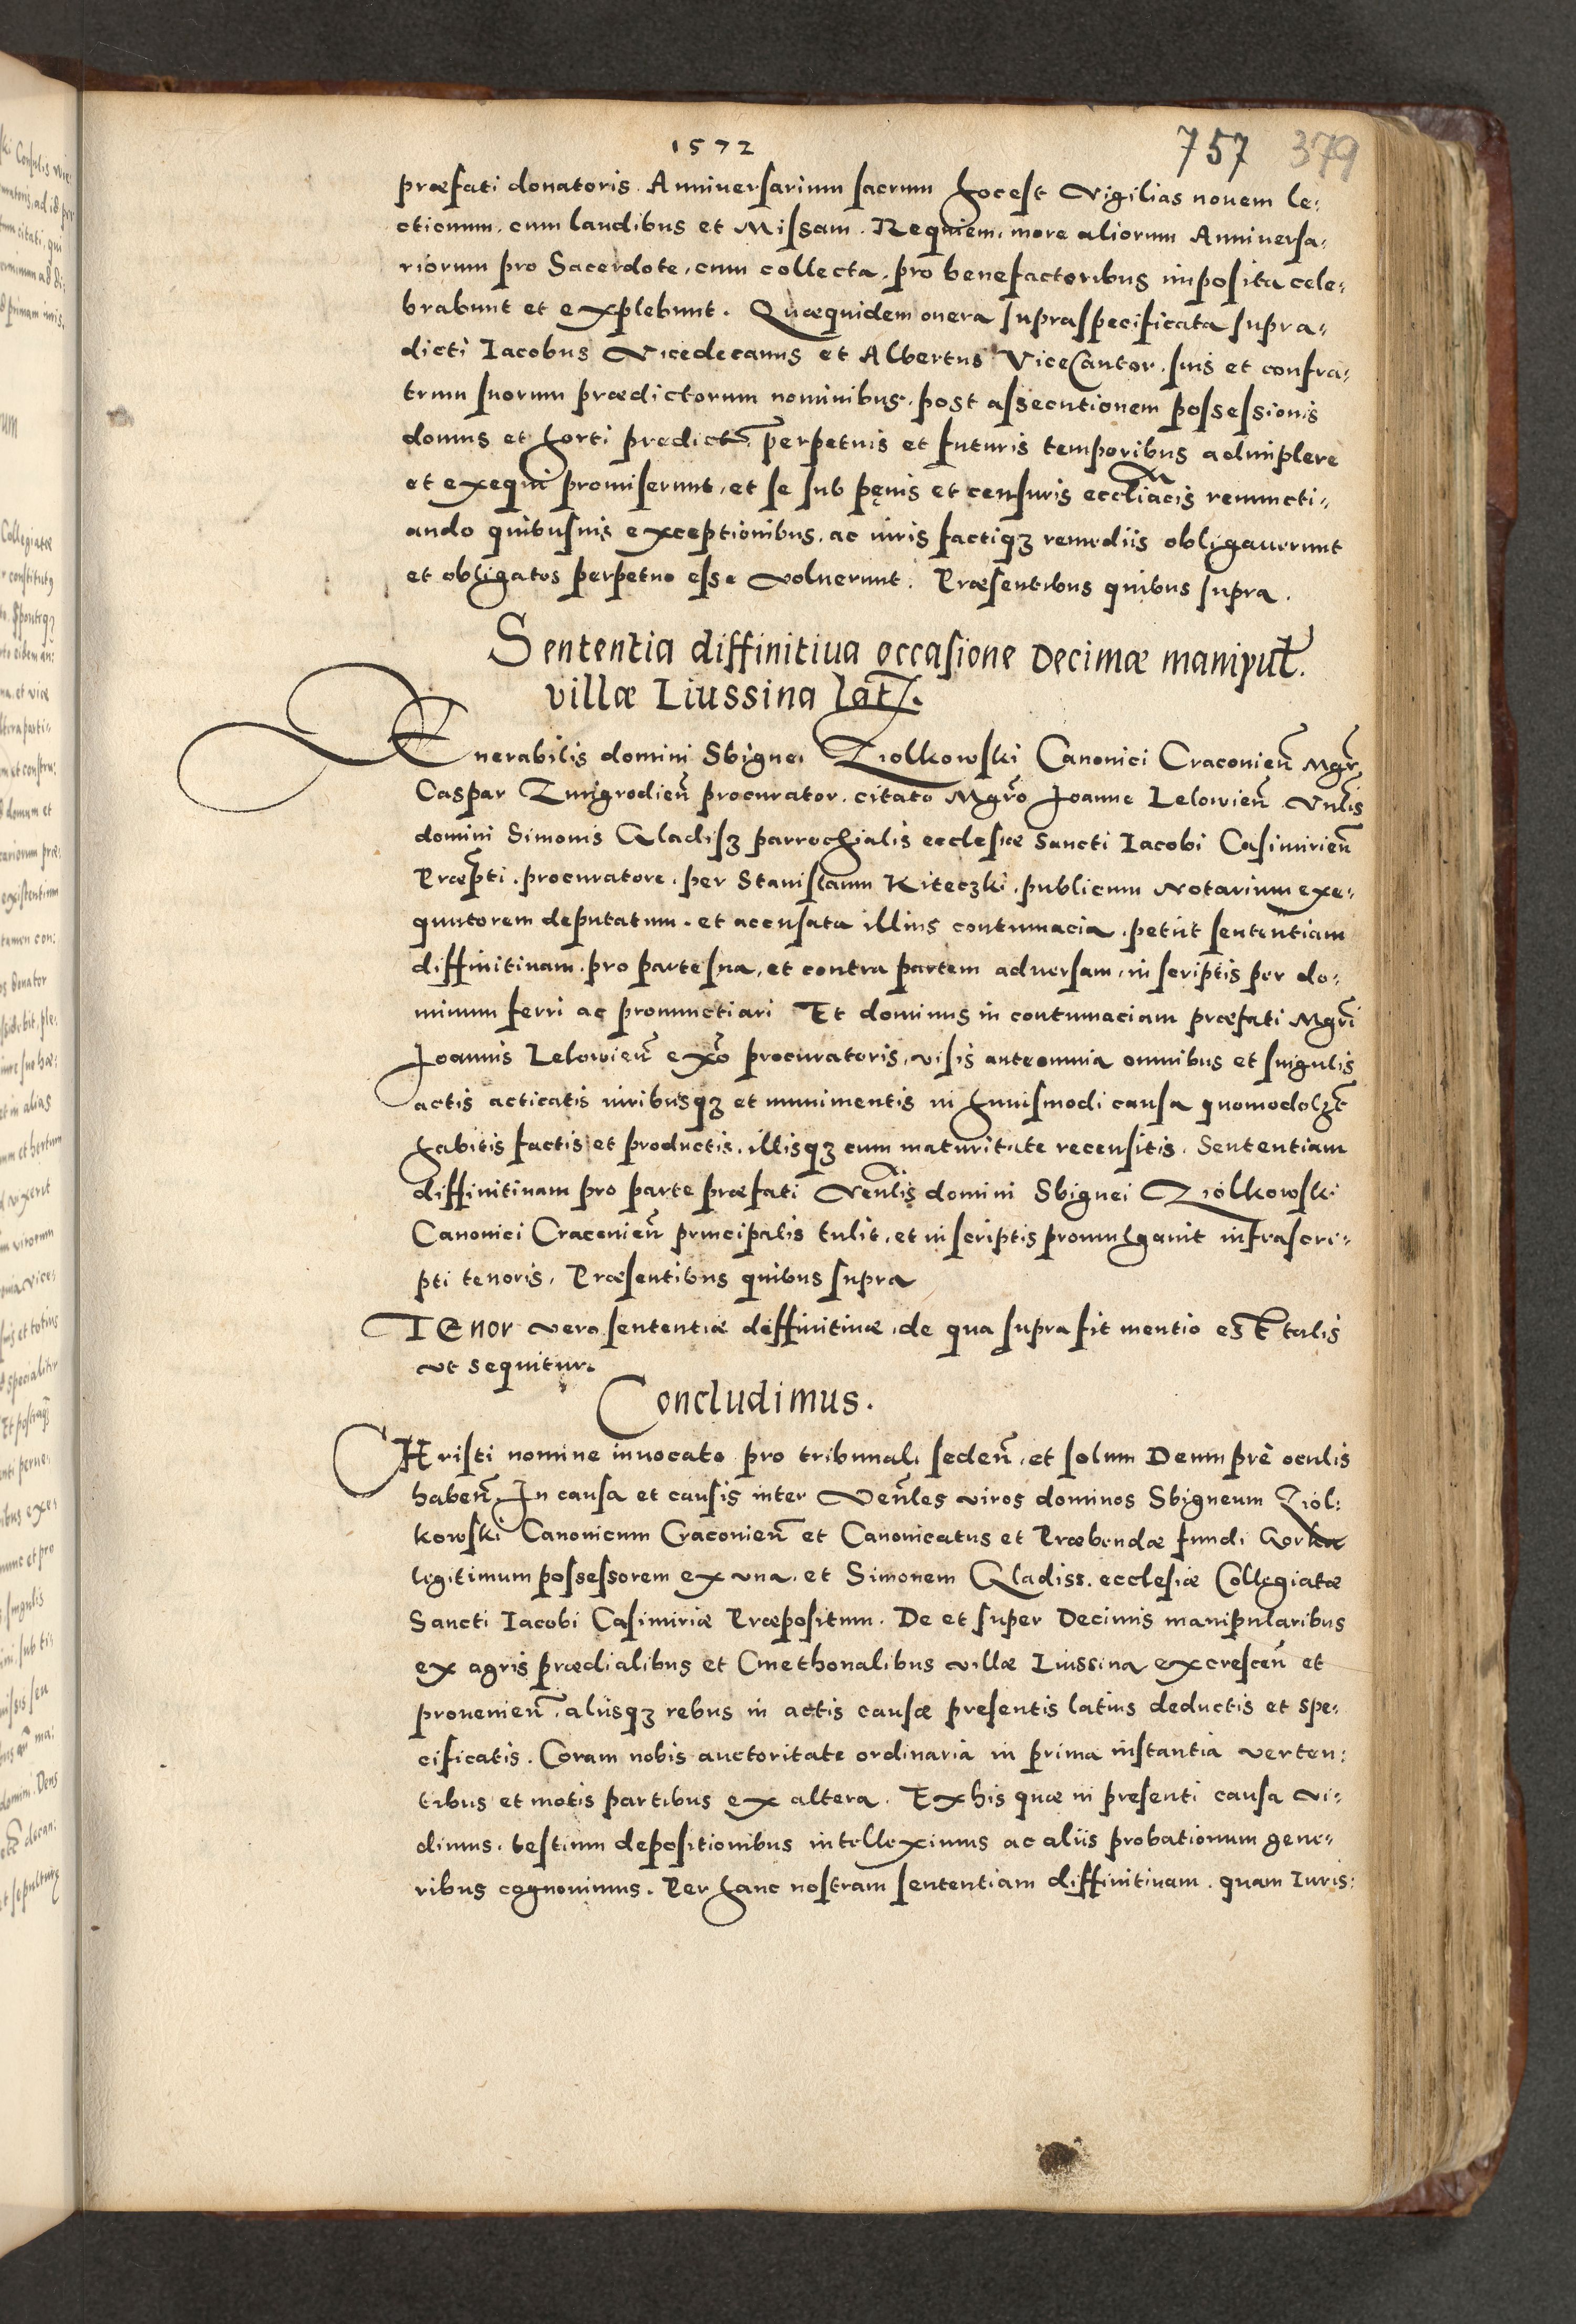 1572
757 379
præfati donatoris. Anniuersarium sacrum hocest Vigilias nouem le:
ctionum, cum laudibus et Missam. Requiem, more aliorum Anniuersa:
riorum pro Sacerdote, cum collecta, pro benefactoribus imposita cele:
brabunt et explebunt. Quæquidem onera supraspecificata supra:
dicti Iacobus Vicedecanus et Albertus ViceCantor, suis et confra:
trum suorum prædictorum nominibus, post assecutionem possessionis
domus et horti predict. perpetuis et futuris temporibus adimplere
et exequi promiserunt, et se sub pęnis et censuris eccliacis renuncti:
ando quibusuis exceptionibus, ac iuris factiqȝ remediis obligauerunt
et obligatos perpetuo esse voluerunt. Præsentibus quibus supra.
Sententia diffinitiua occasione Decimæ manipul.
villæ Liussina lat.
Venerabilis domini Sbignei Ziolkowski Canonici Cracovien̄ Mgr̄
Caspar Zmigrodien̄ procurator, citato Mgrō Joanne Lelowien̄ Vnlis
domini Simonis Gladisz parrochialis ecclesiæ Sancti Iacobi Casimirien̄
Præpti, procuratore, per Stanislaum Kiteczki, publicum Notarium exe:
quutorem deputatum, et accusata illius contumacia, petiit sententiam
diffinitiuam, pro parte sua, et contra partem aduersam, in scriptis per do:
minum ferri ac pronunctiari Et dominus in contumaciam præfati Mgri
Joannis Lelowien̄ ex̄o procuratoris, visis ante omnia omnibus et singulis
actis acticatis iuribusqȝ et munimentis in huiusmodi causa quomodolȝt
habitis factis et productis, illisqȝ cum maturitate recensitis. Sententiam
diffinitiuam pro parte præfati Venlis domini Sbignei Ziolkowski
Canonici Cracovien̄ principalis tulit, et in scriptis promulgauit infrascri:
pti tenoris, Præsentibus quibus supra
TEnor vero sententiæ diffinitiuæ, de qua supra fit mentio est talis
vt sequitur.
Concludimus.
CHristi nomine inuocato pro tribunali seden̄, et solum Deum præ oculis
haben̄, In causa et causis inter Ven̄les viros dominos Sbigneum Ziol:
kowski Canonicum Cracovien̄ et Canonicatus et Præbendæ fundi Gorka
legitimum possessorem ex vna, et Simonem Gladiss. ecclesiæ Collegiatæ
Sancti Iacobi Casimiriæ Præpositum. De et super Decimis manipularibus
ex agris prædialibus et Cmethonalibus villæ Liussina excrescen̄ et
prouenien̄, aliisqȝ rebus in actis causæ presentis latius deductis et spe:
cificatis. Coram nobis auctoritate ordinaria in prima instantia verten:
tibus et motis partibus ex altera. Ex his quæ in presenti causa vi:
dimus, testium depositionibus intelleximus ac aliis probationum gene:
ribus cognouimus. Per hanc nostram sententiam diffinitiuam, quam Iuris: